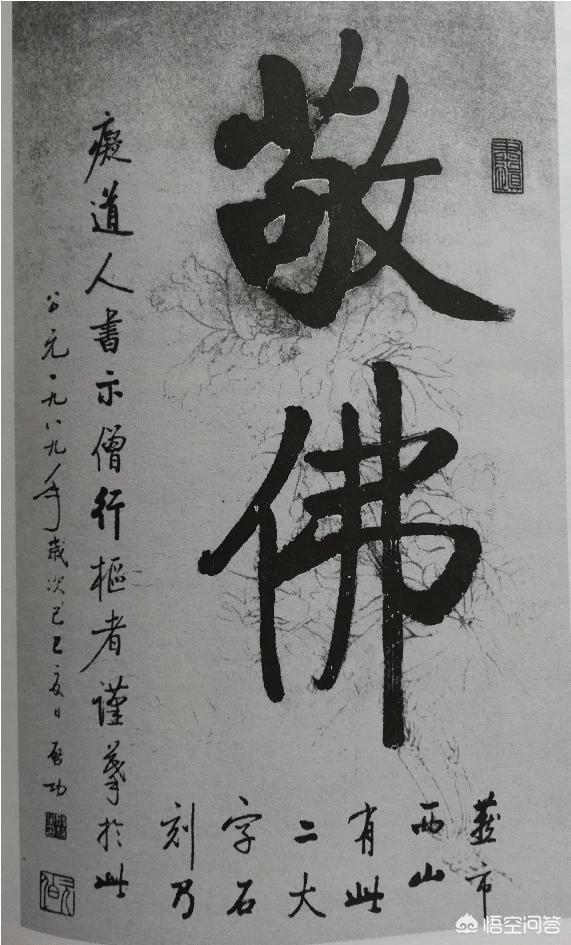 敬佛
燕市
西山
有此
二大
字石
刻乃
癡道人書示僧行樞者謹摹於此
公元一九八九年歲次己巳夏日启功
悟空问答